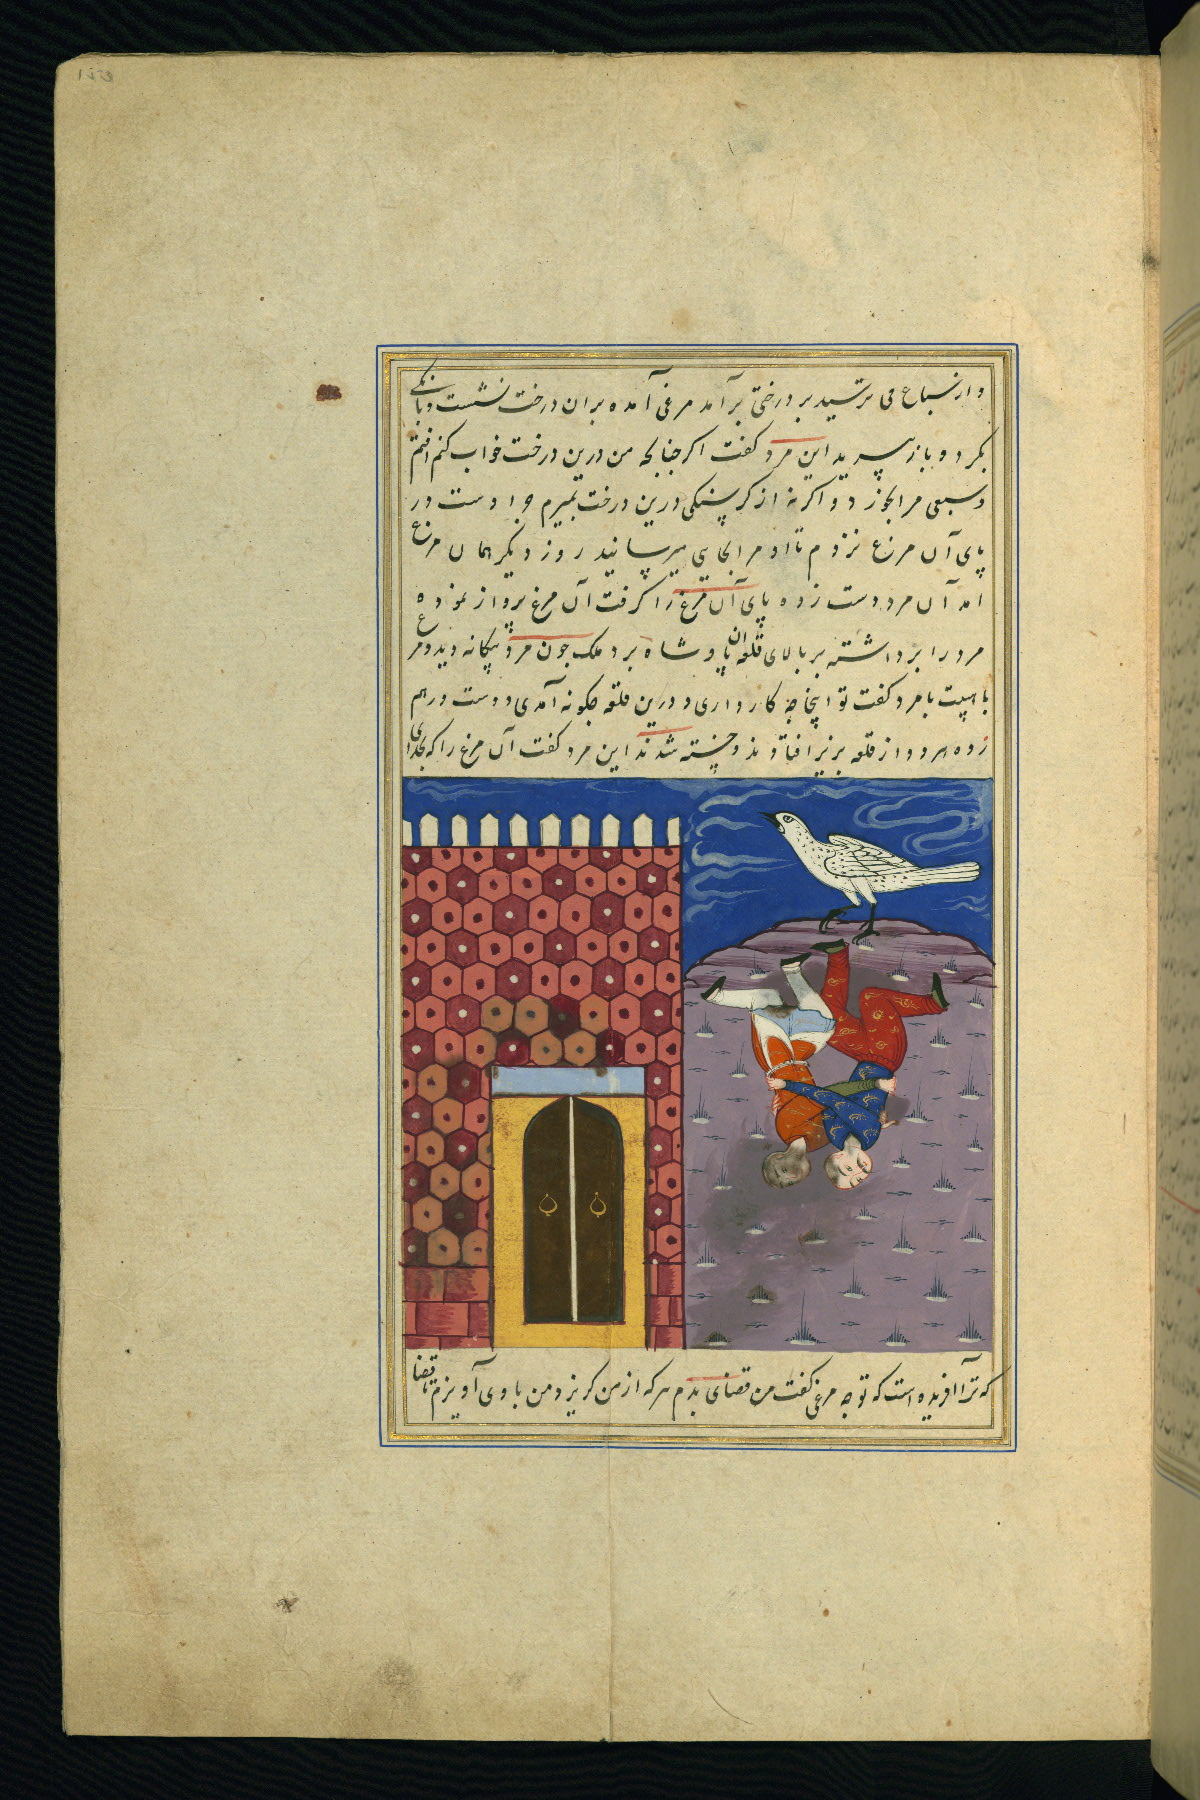 و از سباع می ترسید بر درختی بر آمد مرغی آمده بران درخت نشست و بانکی
بکرد و باز پرید این مرد کفت اکر چنانکه من درین درخت خواب کنم افتم
و سبعی مرا بخورد و اکر نه از کرسنکی درین درخت بمیرم چرا دست در
پای آن مرغ نزدم تا او مرا بجایی میرسانید روز دیکر همان مرغ
امد آن مرد دست زده پای آن مرغ را کرفت آن مرغ پرواز نموده
مرد را برداشته بر بالای قلعه آن پادشاه برد ملک چون مرد بیکانه دید مر
با هیبت با مرد کفت تو اینجا چه کار داری و درین قلعه چکونه آمدی دست درهم
زده هر دو از قلعه بزیر افتادند و خسته شدند این مرد کفت آن مرغ را که بخدای
که ترا آفریده است که تو چه مرغی کفت من قضای بدم هر که از من کریزد من با وی آویزم تا قضا